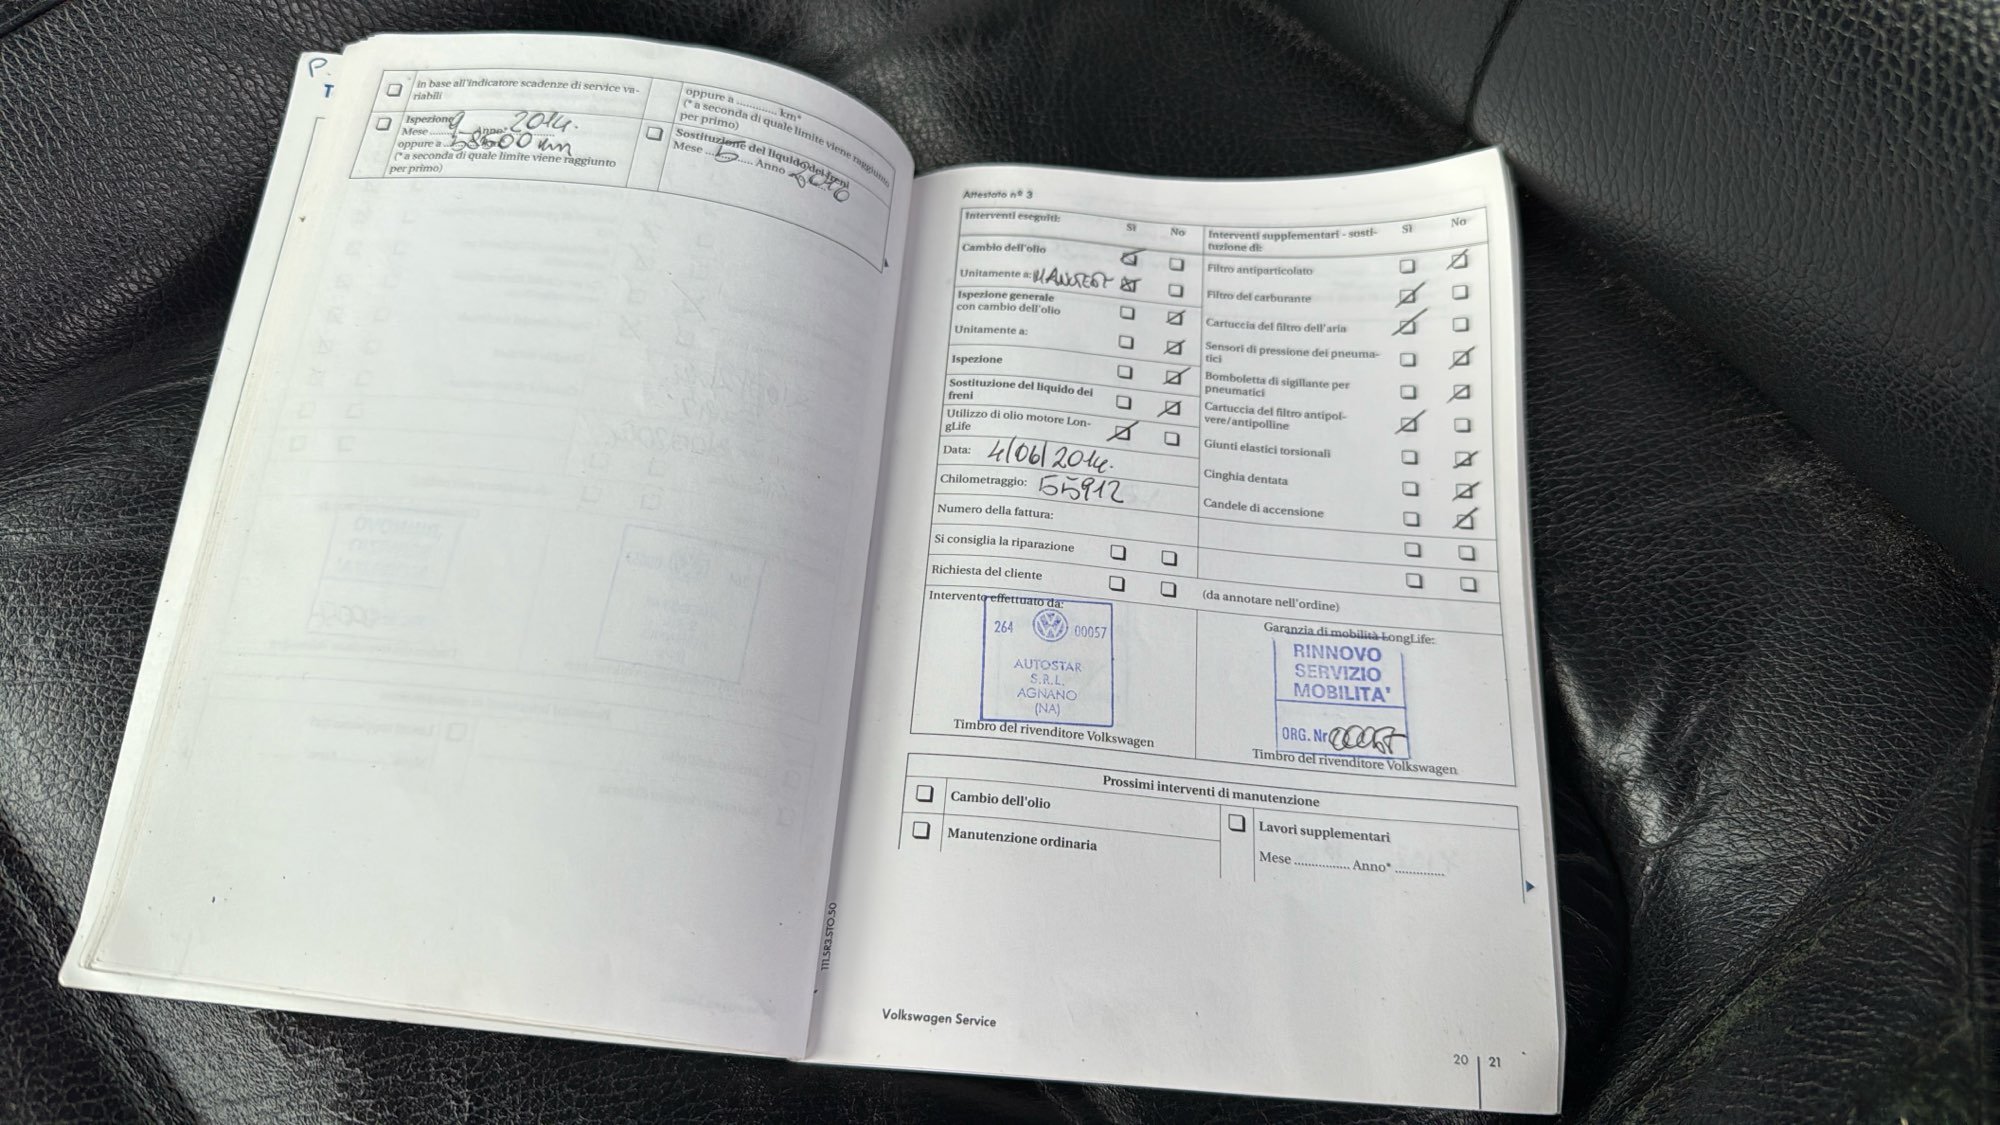 P.
T
in base all'indicatore scadenze di service va-
riabili
Ispezione
Mese ...9... Anno* 2014.
oppure a ...
(* a seconda di quale limite viene raggiunto
per primo)
oppure a ............ km*
(* a seconda di quale limite viene raggiunto
per primo)
Sostituzione del liquido dei freni
Mese ...5..... Anno
Attestato nº 3
Interventi eseguiti:
Sì
No
Cambio dell'olio
Unitamente a:
Ispezione generale
con cambio dell'olio
Unitamente a:
Ispezione
Sostituzione del liquido dei
freni
Utilizzo di olio motore Lon-
gLife
Data: 4/06/2014.
Chilometraggio: 55912
Numero della fattura:
Si consiglia la riparazione
Richiesta del cliente
Interventi supplementari - sosti-
tuzione di:
Sì
No
Filtro antiparticolato
Filtro del carburante
Cartuccia del filtro dell'aria
Sensori di pressione dei pneuma-
tici
Bomboletta di sigillante per
pneumatici
Cartuccia del filtro antipol-
vere/antipolline
Giunti elastici torsionali
Cinghia dentata
Candele di accensione
(da annotare nell'ordine)
Intervento effettuato da:
264 00057
AUTOSTAR
S.R.L.
AGNANO
(NA)
Timbro del rivenditore Volkswagen
Garanzia di mobilità LongLife:
RINNOVO
SERVIZIO
MOBILITA'
ORG. Nr 00057
Timbro del rivenditore Volkswagen
Prossimi interventi di manutenzione
Cambio dell'olio
Manutenzione ordinaria
Lavori supplementari
Mese ................ Anno* ..............
111.5R3.STO.50
Volkswagen Service
20 | 21